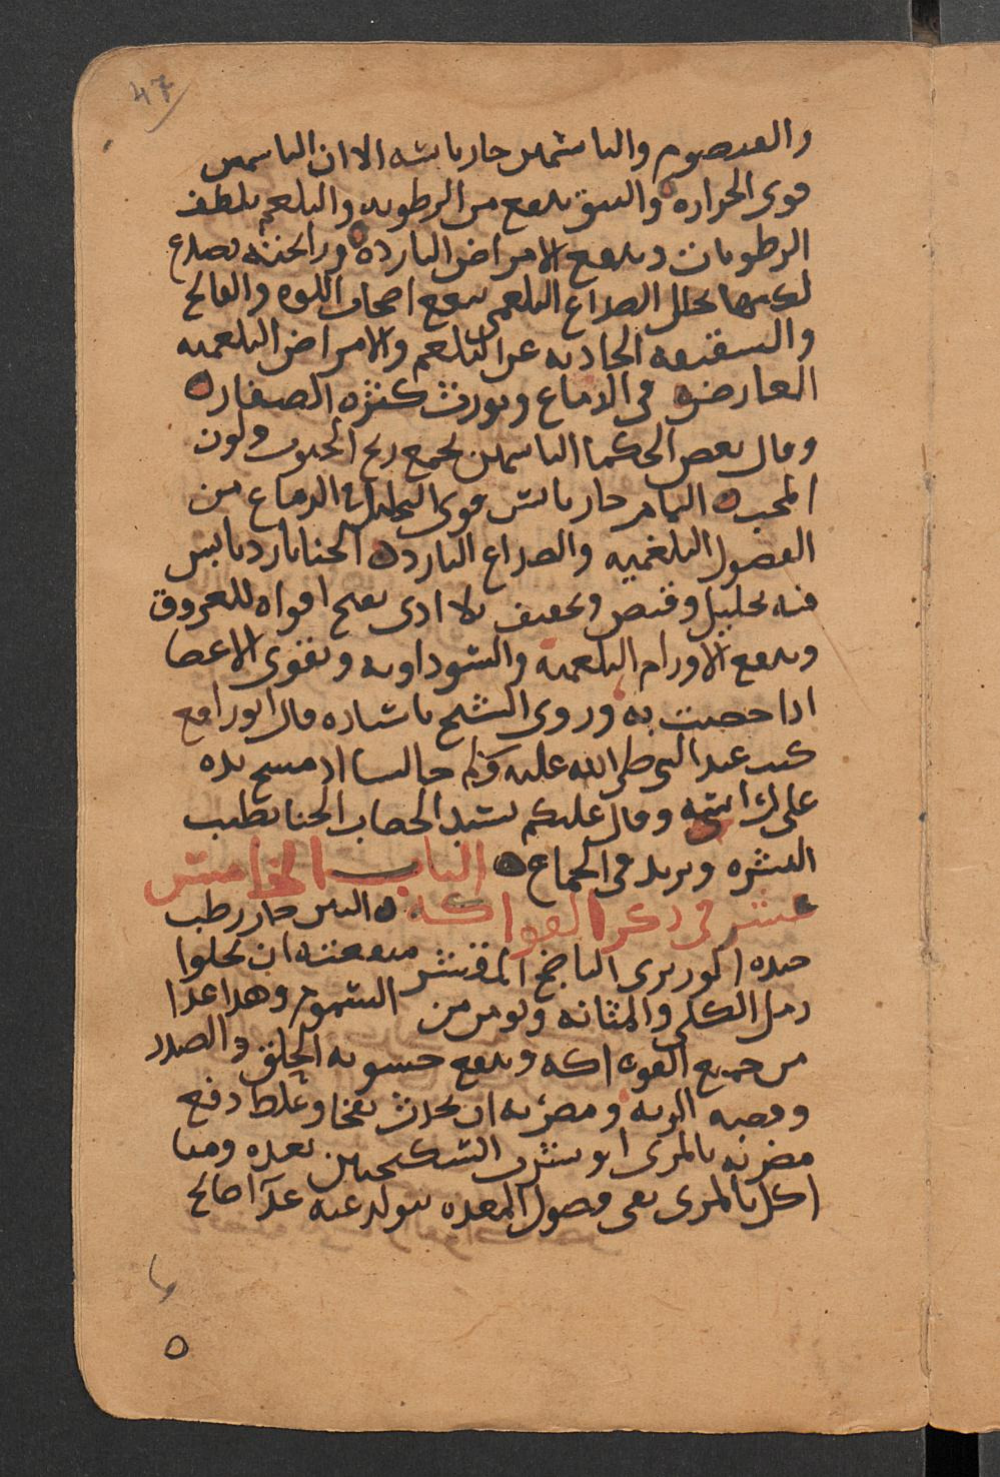 47
والقيصوم والياسمين حار يابسه الا ان الياسمين
قوى الحراره واليبس ينفع من الرطوبه والبلغم يلطف
الرطوبات وينفع الامراض البارده ورائحته تصدع
لكنها تحلل الصداع البلغمى ينفع اصحاب اللقوه والفالج
والشقيقه الحادثه عن البلغم والامراض البلغميه
العارضه فى الدماغ ويورث كثره الصفار
وقال بعض الحكما الياسمين يجمع ريح المحبوب ولون
المحب النمام حار يابس قوى التحليل الدماغ من
الفضول البلغميه والصداع البارد الحنا بارد يابس
فيه تحليل وقبض وتجفيف بلا اذى يفتح افواه للعروق
وينفع الاورام البلغميه والسوداويه ويقوى الاعضا
اذا خضبت به وروى الشيخ باسناده قال ابو رافع
كنت عند النبى صلى الله عليه وسلم جالسا اذ مسح يده
على راسه وقال عليكم بسيد الخضاب الحنا يطيب
البشره ويزيد فى الجماع الباب الخامس
عشر فى ذكر الفواكه التين حار رطب
جيده الناضج المقشر منفعته ان يجلوا
رمل الكلى والمثانه ويومن من السموم وهذا غذا
من جميع الفواكه وينفع خشونه الحلق والصدر
وقصبه الريه ومضرته ان يحدث نفخا وغلظا دفع
مضرته بالمرى او بشرب السكنجبين بعده ومتى
اكل بالمرى نقى فضول المعده يتولد عنه غذا صالح